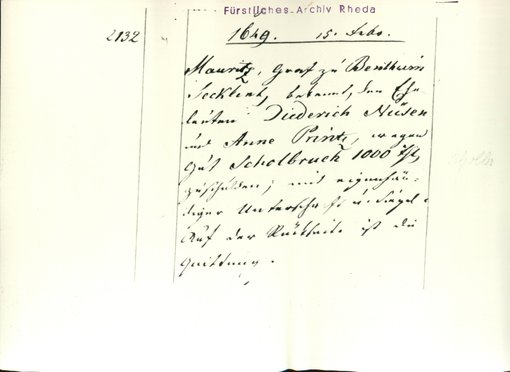 Fürstliches Archiv Rheda
2132
1649. 15. Febr.
Mauritz, Graf zu Bentheim
Tecklenb, bekennt, den Ehe-
leuten Diederich Niesen
und Anne Printz, wegen
Gut Scholbruch 1000 Thl,
zuschulden; mit eigenhän-
diger Unterschrift u. Siegel.
Auf der Rückseite ist die
Quittung.